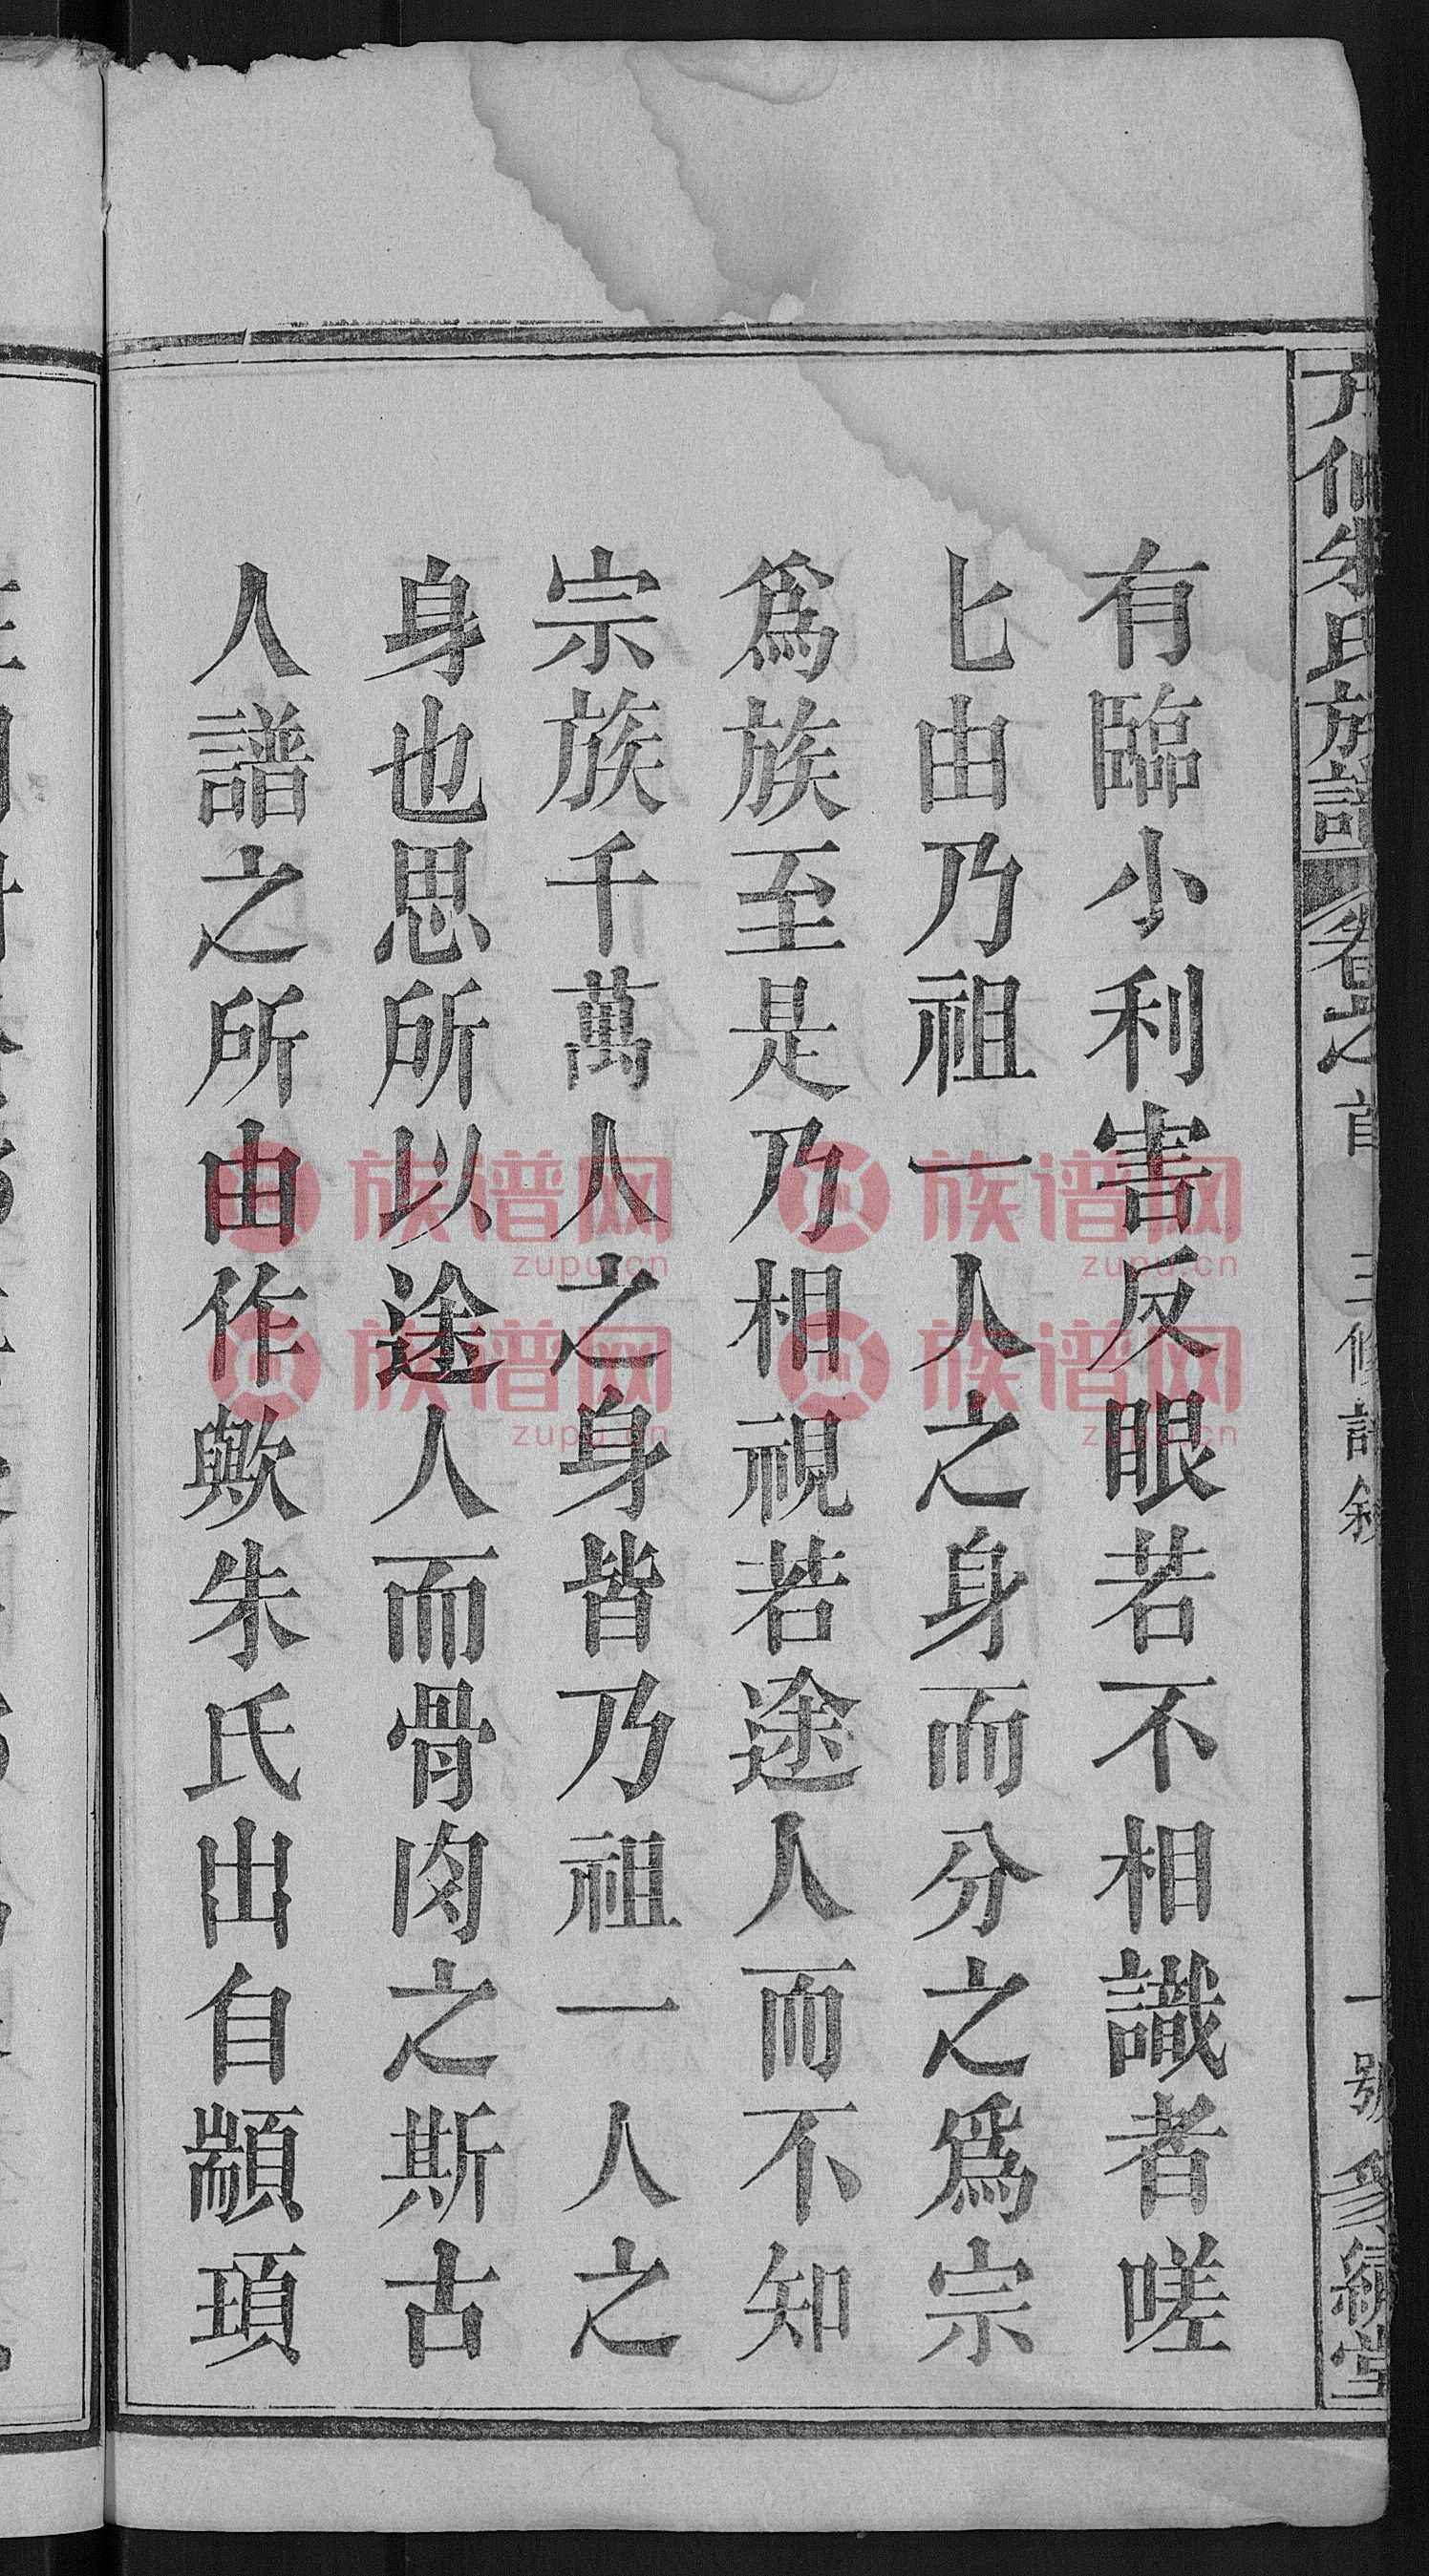 有臨小利害反眼若不相識者嗟
匕由乃祖一人之身而分之爲宗
爲族至是乃相視若途人而不知
宗族千萬人之身皆乃祖一人之
身也思所以途人而骨肉之斯古
人譜之所由作歟朱氏出自顓頊
修朱氏族譜
卷之首
三修譜敘
一號
續堂
族谱网
zupu.cn
族谱网
zupu.cn
族谱网
zupu.cn
族谱网
zupu.cn